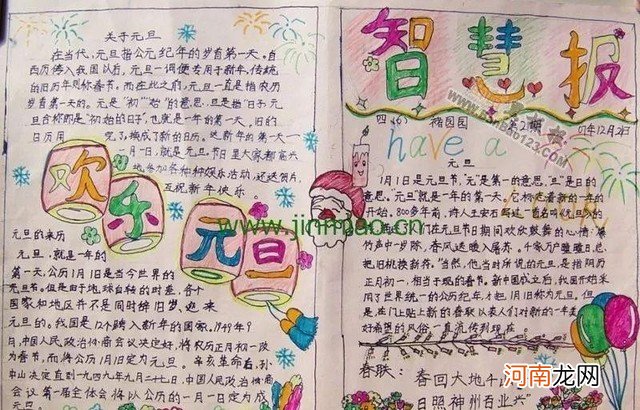 关于元旦
在当代,元旦指公元纪年的岁首第一天。自
西历传入我国以后,元旦一词便专用于新年,传统
的旧历年则称春节。而在此之前,元旦一直是指农历
岁首第一天的。元是"初""始"的意思,旦是指"日子",元
旦合称即是"初始的日子",也就是一年的第一天。旧的
日历用完了换成了新的日历。这新年的第一天——
一月一日,就是元旦节日里大家都高兴
地参加各种娱乐活动,还送贺片,
互祝新年快乐。
欢乐元旦
元旦的来历
元旦,就是一年的
第一天,公历1月1日是当今世界的
元旦节。但是由于地球自转的时差,各个
国家和地区并不是同时辞旧岁、迎来
元旦的。我国是12个跨入新年的国家,1949年9
月,中国人民政治协商会议决定,将农历正月初一改
为春节,而将公历1月1日定为元旦。辛亥革命后,孙
中山决定
直到一九四九年九月二十七日,中国人民政治协商
会议第一届全体会将以公历的一月一日定为
元旦
智慧报
四(6)
第2期
12月2日
have a
元旦
1月1日是元旦节,"元"是第一的意思,"旦"是"日"的
意思。元旦就是一年的第一天。它标志着新的一年的
开始。800多年前,诗人王安石
我们在元旦节日期间欢欣鼓舞的心情:爆
竹声中一岁除,春风送暖入屠苏。千家万户曈曈日,总
把旧桃换新符。"当然,他当时所说的元旦,是指阴历
正月初一,相当于现的春节。新中国成立后,我国开始采
用了世界统一的公历纪年,才把1月1日称为元旦。但
是,在门上贴上新的春联以表人们对新的一年美
好希望的风俗一直流传到现在。
春联:
春回大地千
日照神州百业兴
www.jinmiao.cn
SHOUCHAOBAO123.COM
河南龙网